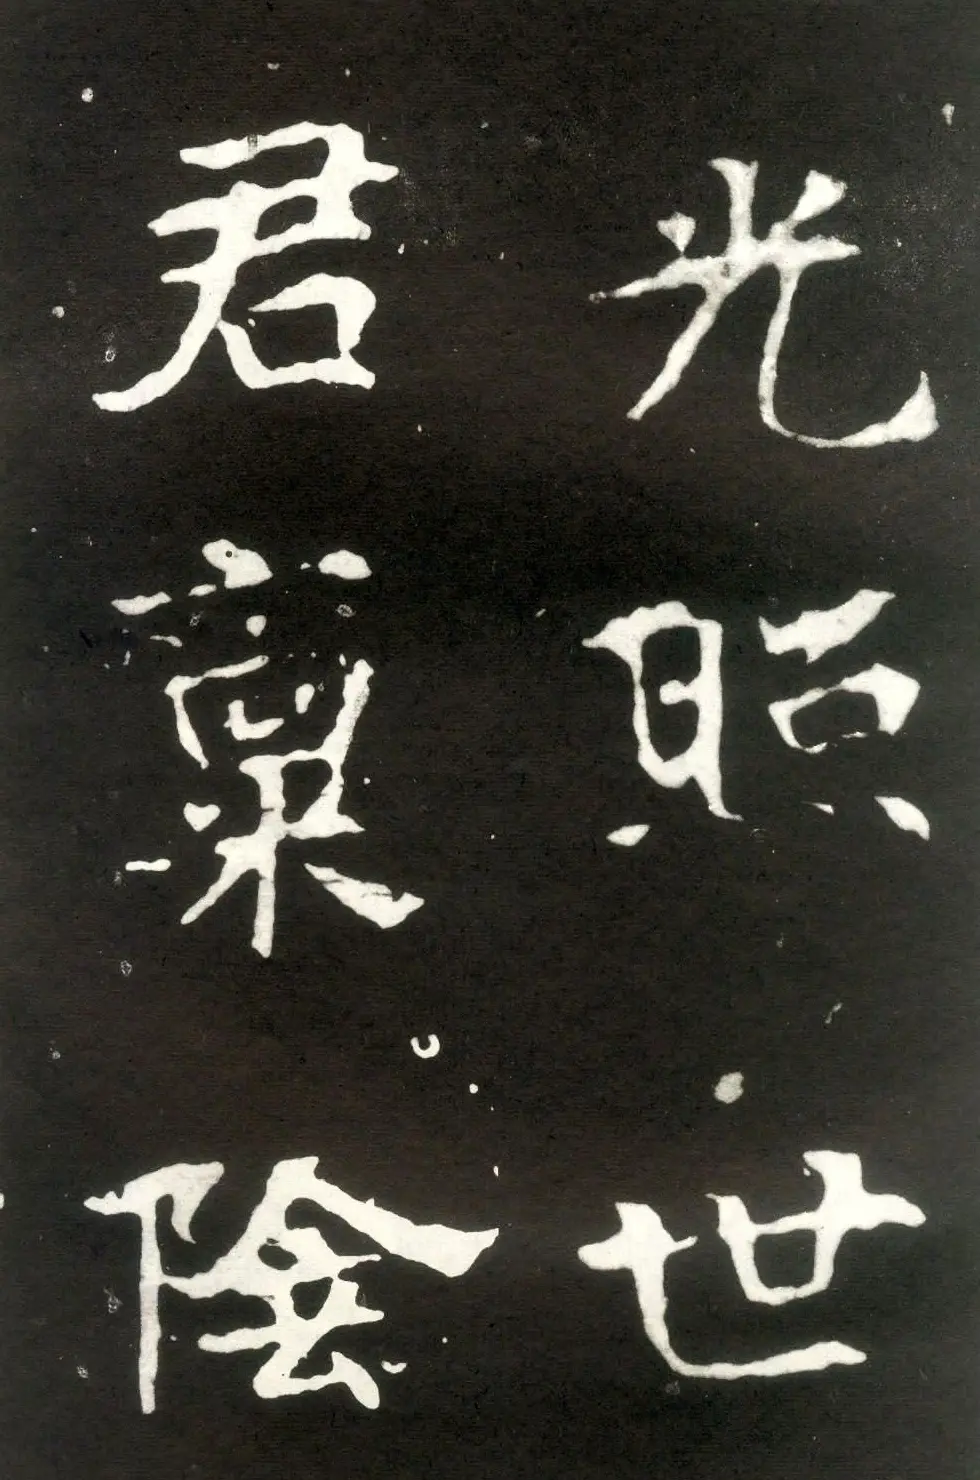 光照世
君稟陰